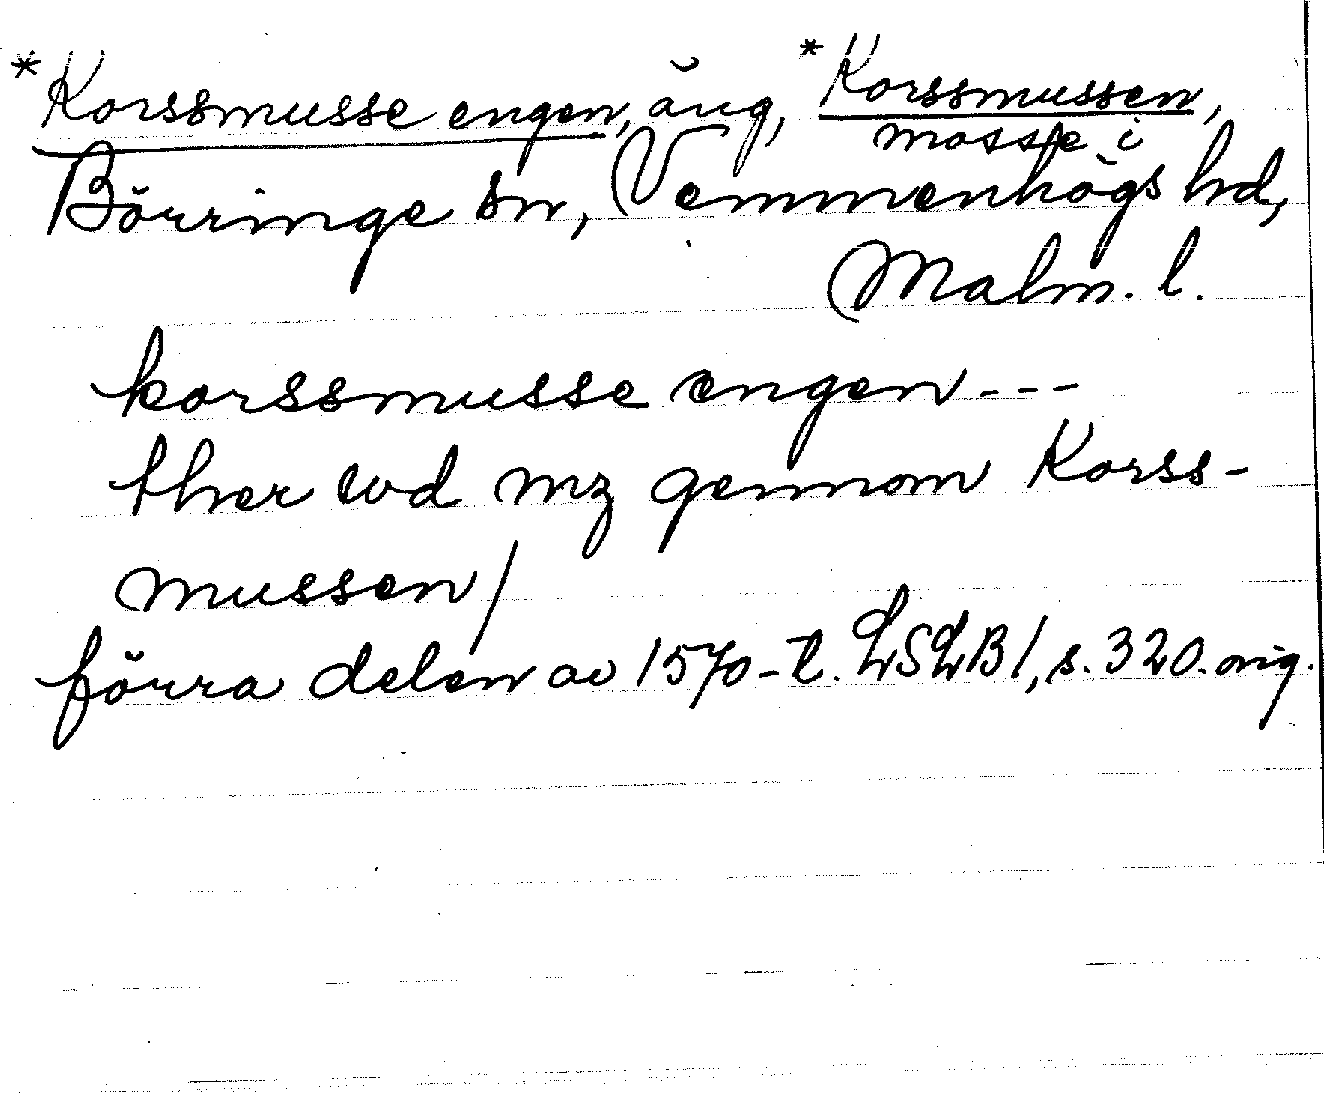 *Korssmusse engen, äng, *Korssmussen,
mosse i
Börringe sn, Vemmenhögs hd,
Malm. l.
korssmusse engen ---
ther wd mz gennom Korss-
mussen/
förra delen av 1570-t. LSLB1, s. 320. orig.